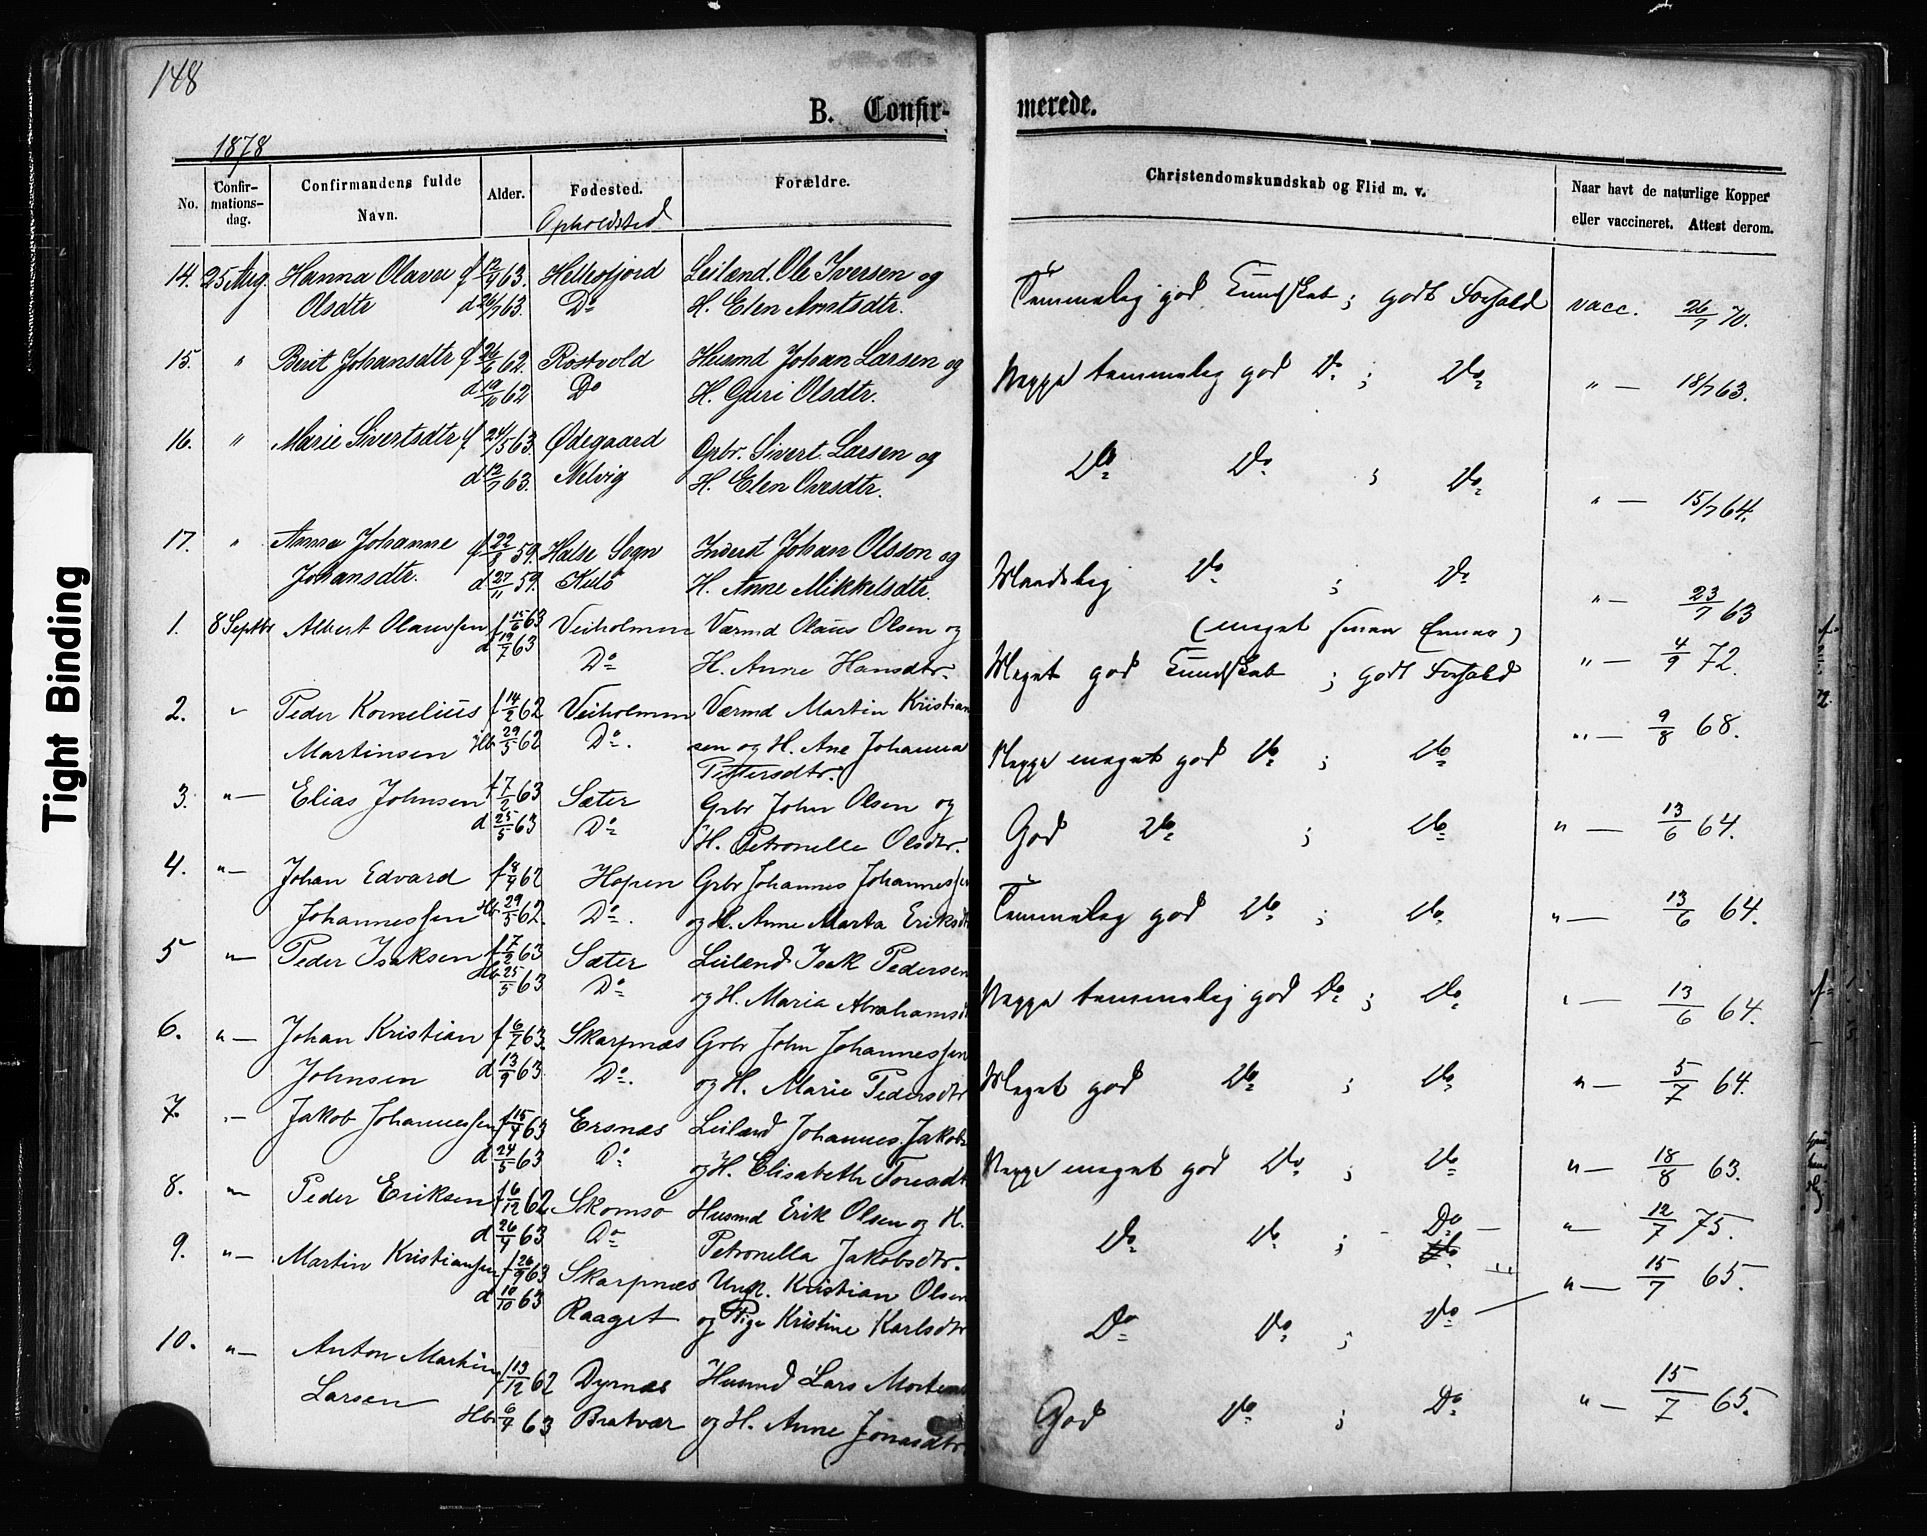 148
B. Confir- merede.
1878
No. Confir-mations-dag. Confirmandens fulde Navn. Alder. Fødested. Opholdssted Forældre. Christendomskundskab og Flid m. v. Naar havt de naturlige Kopper eller vaccineret. Attest derom.
14. 25 Aug. Hanna Olava f 12/4 63. Helkesfjord Leilænd. Ole Iversen og Temmelig god Kundskab ; godt Forhold vacc. 26/7 70.
Olsdtr d 26/7 63. Do H. Elen Arntsdtr.
15. " Berit Johansdtr f 26/6 62. Rostvold Husmd Johan Larsen og Neppe temmelig god Do ; Do " — 18/7 63.
d 19/10 62 Do H. Guri Olsdtr.
16. " Marie Sivertsdtr f 24/5 63. Ødegaard Grbr. Sivert Larsen og Do Do ; Do " — 15/7 64.
d 12/7 63. Nelvig H. Elen Ovesdtr.
17. " Anne Johanne f 22/8 59. Halse Sogn Inderst Johan Olsson og Maadelig Do ; Do " — 23/7 63
Johansdtr. d 27/11 59. Kulö H. Anne Mikkelsdtr. (meget smaa Evner)
1. 8 Septbr Albert Olaussen f 15/6 63 Veiholmen Værmd Olaus Olsen og Meget god Kundskab ; godt Forhold " — 4/9 72.
d 19/7 63 Do H. Anne Hansdtr.
2. " Peder Kornelius f 14/2 62 Veiholmen Værmd Martin Kristian Neppe meget god Do ; Do " — 9/8 68.
Martinsen Hb 29/5 62 Do. sen og H. Ane Johanna
Pettersdtr.
3. " — Elias Johnsen f 7/2 63 Sæter Grbr John Olsen og God Do ; Do " — 13/6 64.
d 25/5 63 Do H. Petronelle Olsdtr.
4. " — Johan Edvard f 8/4 62 Hopen Grbr Johannes Johannessen Temmelig god Do ; Do " — 13/6 64.
Johannessen Hb 29/5 62. Do. og H. Anne Marta Eriksdt
5 " — Peder Isaksen f 7/2 63 Sæter Leilænd Isak Pedersen Neppe temmelig god Do ; Do " — 13/6 64.
Hb 25/5 63 Do og H. Maria Abrahamsd
6. " — Johan Kristian f 6/7 63. Skarpnæs Grbr John Johannessen Meget god Do ; Do " — 5/7 64.
Johnsen d 13/9 63 Do. og H. Marie Pedersdtr
7. " — Jakob Johannessen f 15/4 63 Ersnæs Leilænd Johannes Jakobs Neppe meget god Do ; Do " — 18/8 63.
d 24/5 63 Do og H. Elisabeth Toresdt
8. " — Peder Eriksen f 6/12 62 Skomsø Husmd Erik Olsen og H. Do Do ; Do — " — 12/7 75.
d 26/4 63 Do Petronella Jakobsdtr.
9. " — Martin Kristiansen f 26/9 63 Skarpnæs Ungk. Kristian Olsen Do Do ; Do " — 15/7 65.
d 18/10 63 Raaget og Pige Kristine Karlsdtr
10. " — Anton Martin f 13/12 62 Dyrnes Husmd Lars Mortens God Do ; Do " — 15/7 65.
Larsen Hb 6/4 63 Bratvær og H. Anne Jonasdtr
Tight Binding